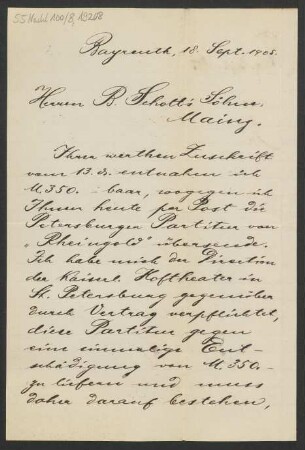 Bayreuth, 18. Sept. 1905.
Herren B. Schott's Söhne.
Mainz.
Ihrer werthen Zuschrift
vom 13. ds. entnahm ich
M. 350. baar, wogegen ich
Ihnen heute per Post die
Petersburger Partitur von
„Rheingold" übersende.
Ich habe mich der Direction
der Kaiserl. Hoftheater in
St. Petersburg gegenüber
durch Vertrag verpflichtet,
diese Partitur gegen
eine einmalige Ent-
schädigung von M. 350.-
zu liefern und muss
daher darauf bestehen,